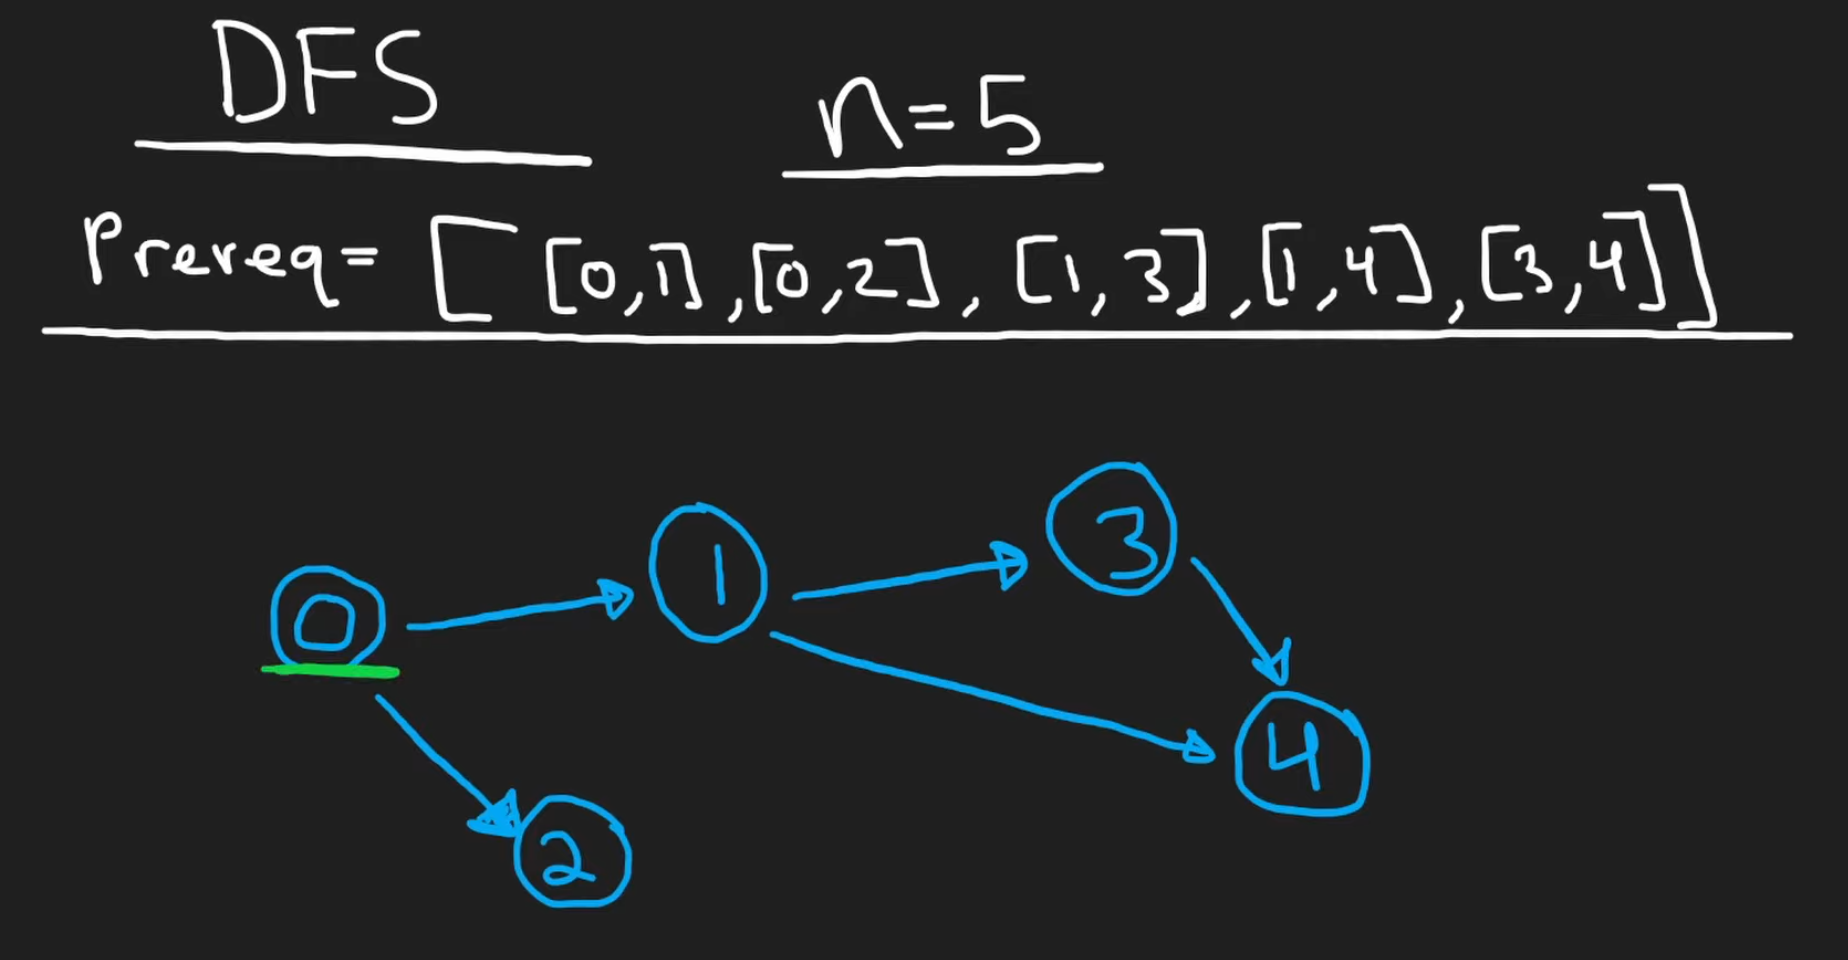 DFS
n=5
Prereq= [ [0,1],[0,2], [1,3],[1,4],[3,4]]
3
1
0
4
2